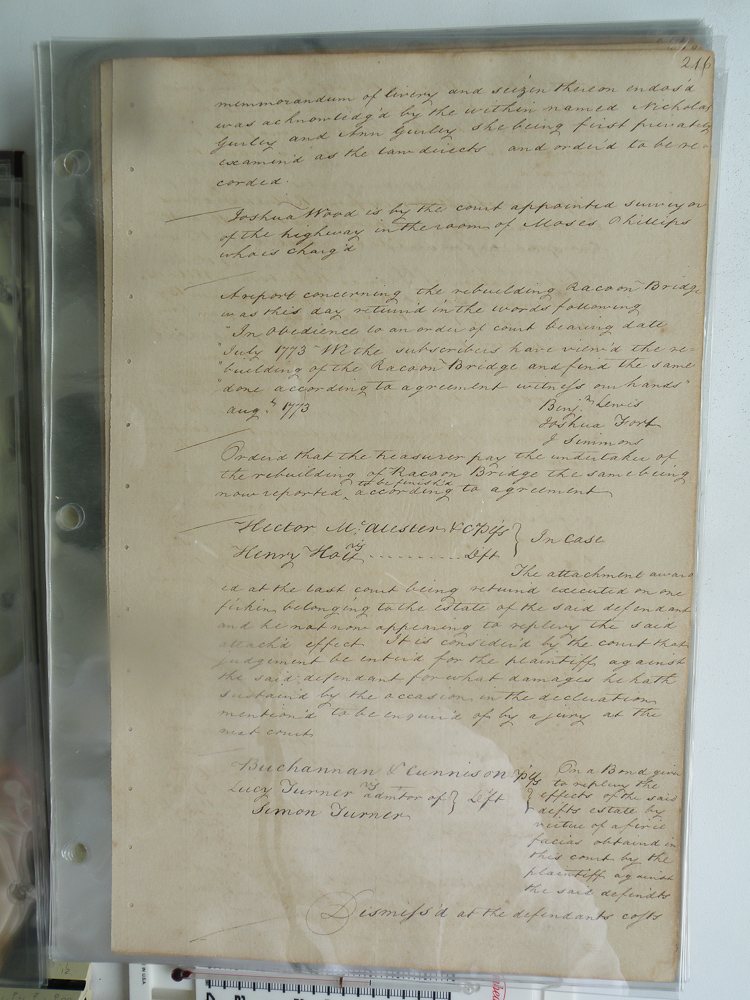 216
memmorandum of livery and seizin thereon endos'd
was acknowledg'd by the within named Nicholas
Gurley and Ann Gurley she being first privately
examin'd as the law directs and order'd to be re-
corded.
Joshua Wood is by the court appointed surveyor
of the highway in the room of Moses Phillips
who is charg'd
A report concerning the rebuilding Racoon Bridge
was this day return'd in the words following
"In Obedience to an order of court bearing date
"July 1773 We the subscribers have view'd the re-
"building of the Racoon Bridge and find the same
"done according to agreement witness our hands"
aug.t 1773 Benj.n Lewis
Joshua Fort
J Simmons
Orderd that the treasurer pay the undertaker of
the rebuilding of Racoon Bridge the same being
now reported to be finish'd according to agreement
Hector Mc.Alester & C° Plfs } In Case
vs
Henry Hail .......... Dft
The attachment award
ed at the last court being returnd executed on one
firkin belonging to the estate of the said defendant
and he not now appearing to replevy the said
attach'd effect It is consider'd by the court that
judgement be enter'd for the plaintiff against
the said defendant for what damages he hath
sustain'd by the occasion in the declaration
mention'd to be enquir'd of by a jury at the
next court
Buchannan & Cunnison Plfs
vs
Lucy Turner admtor of } Dft
Simon Turner
On a Bond given
to replevy the
effects of the said
defts estate by
virtue of a firie
facias obtaind in
this court by the
plaintiff against
the said defendts
Dismiss'd at the defendants costs